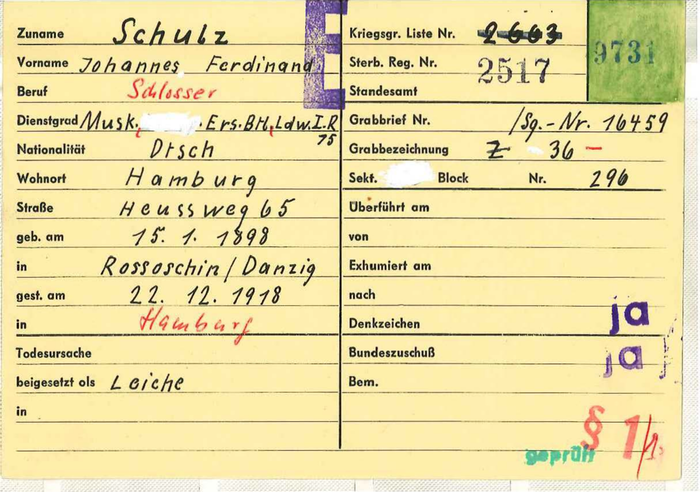 E
Zuname Schulz
Vorname Johannes Ferdinand
Beruf Schlosser
Dienstgrad Musk. Ers.Btl, Ldw.I.R
75
Nationalität Dtsch
Wohnort Hamburg
Straße Heussweg 65
geb. am 15. 1. 1898
in Rossoschin/Danzig
gest. am 22. 12. 1918
in Hamburg
Todesursache
beigesetzt als Leiche
in
Kriegsgr. Liste Nr. 2663
9731
Sterb. Reg. Nr. 2517
Standesamt
Grabbrief Nr. /Sg.-Nr. 16459
Grabbezeichnung Z 36 -
Sekt. Block Nr. 296
Überführt am
von
Exhumiert am
nach
Denkzeichen ja
Bundeszuschuß ja
Bem.
§ 1
geprüft